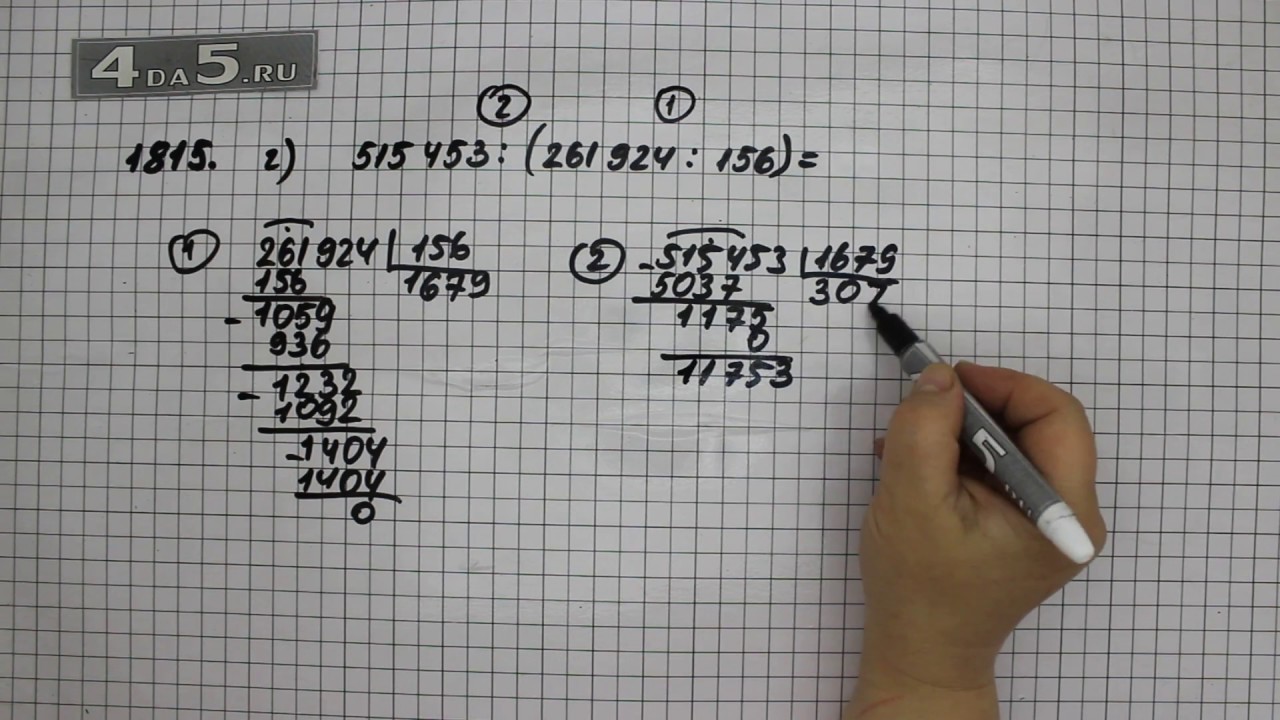 4DA5.RU
② ①
1815. г) 515 453 : (261 924 : 156) =
① 261924 | 156
156 1679
- 1059
936
- 1232
1092
- 1404
1404
0
② - 515453 | 1679
5037 307
1175
0
11753
5